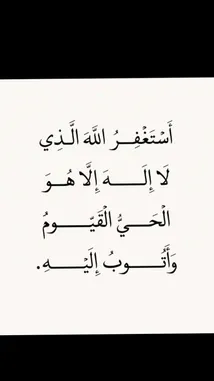 أَسْتَغْفِرُ اللَّهَ الَّذِي
لَا إِلَـــهَ إِلَّا هُـــوَ
الْحَيُّ الْقَيّـــومُ
وَأَتُـــوبُ إِلَيْـــهِ.